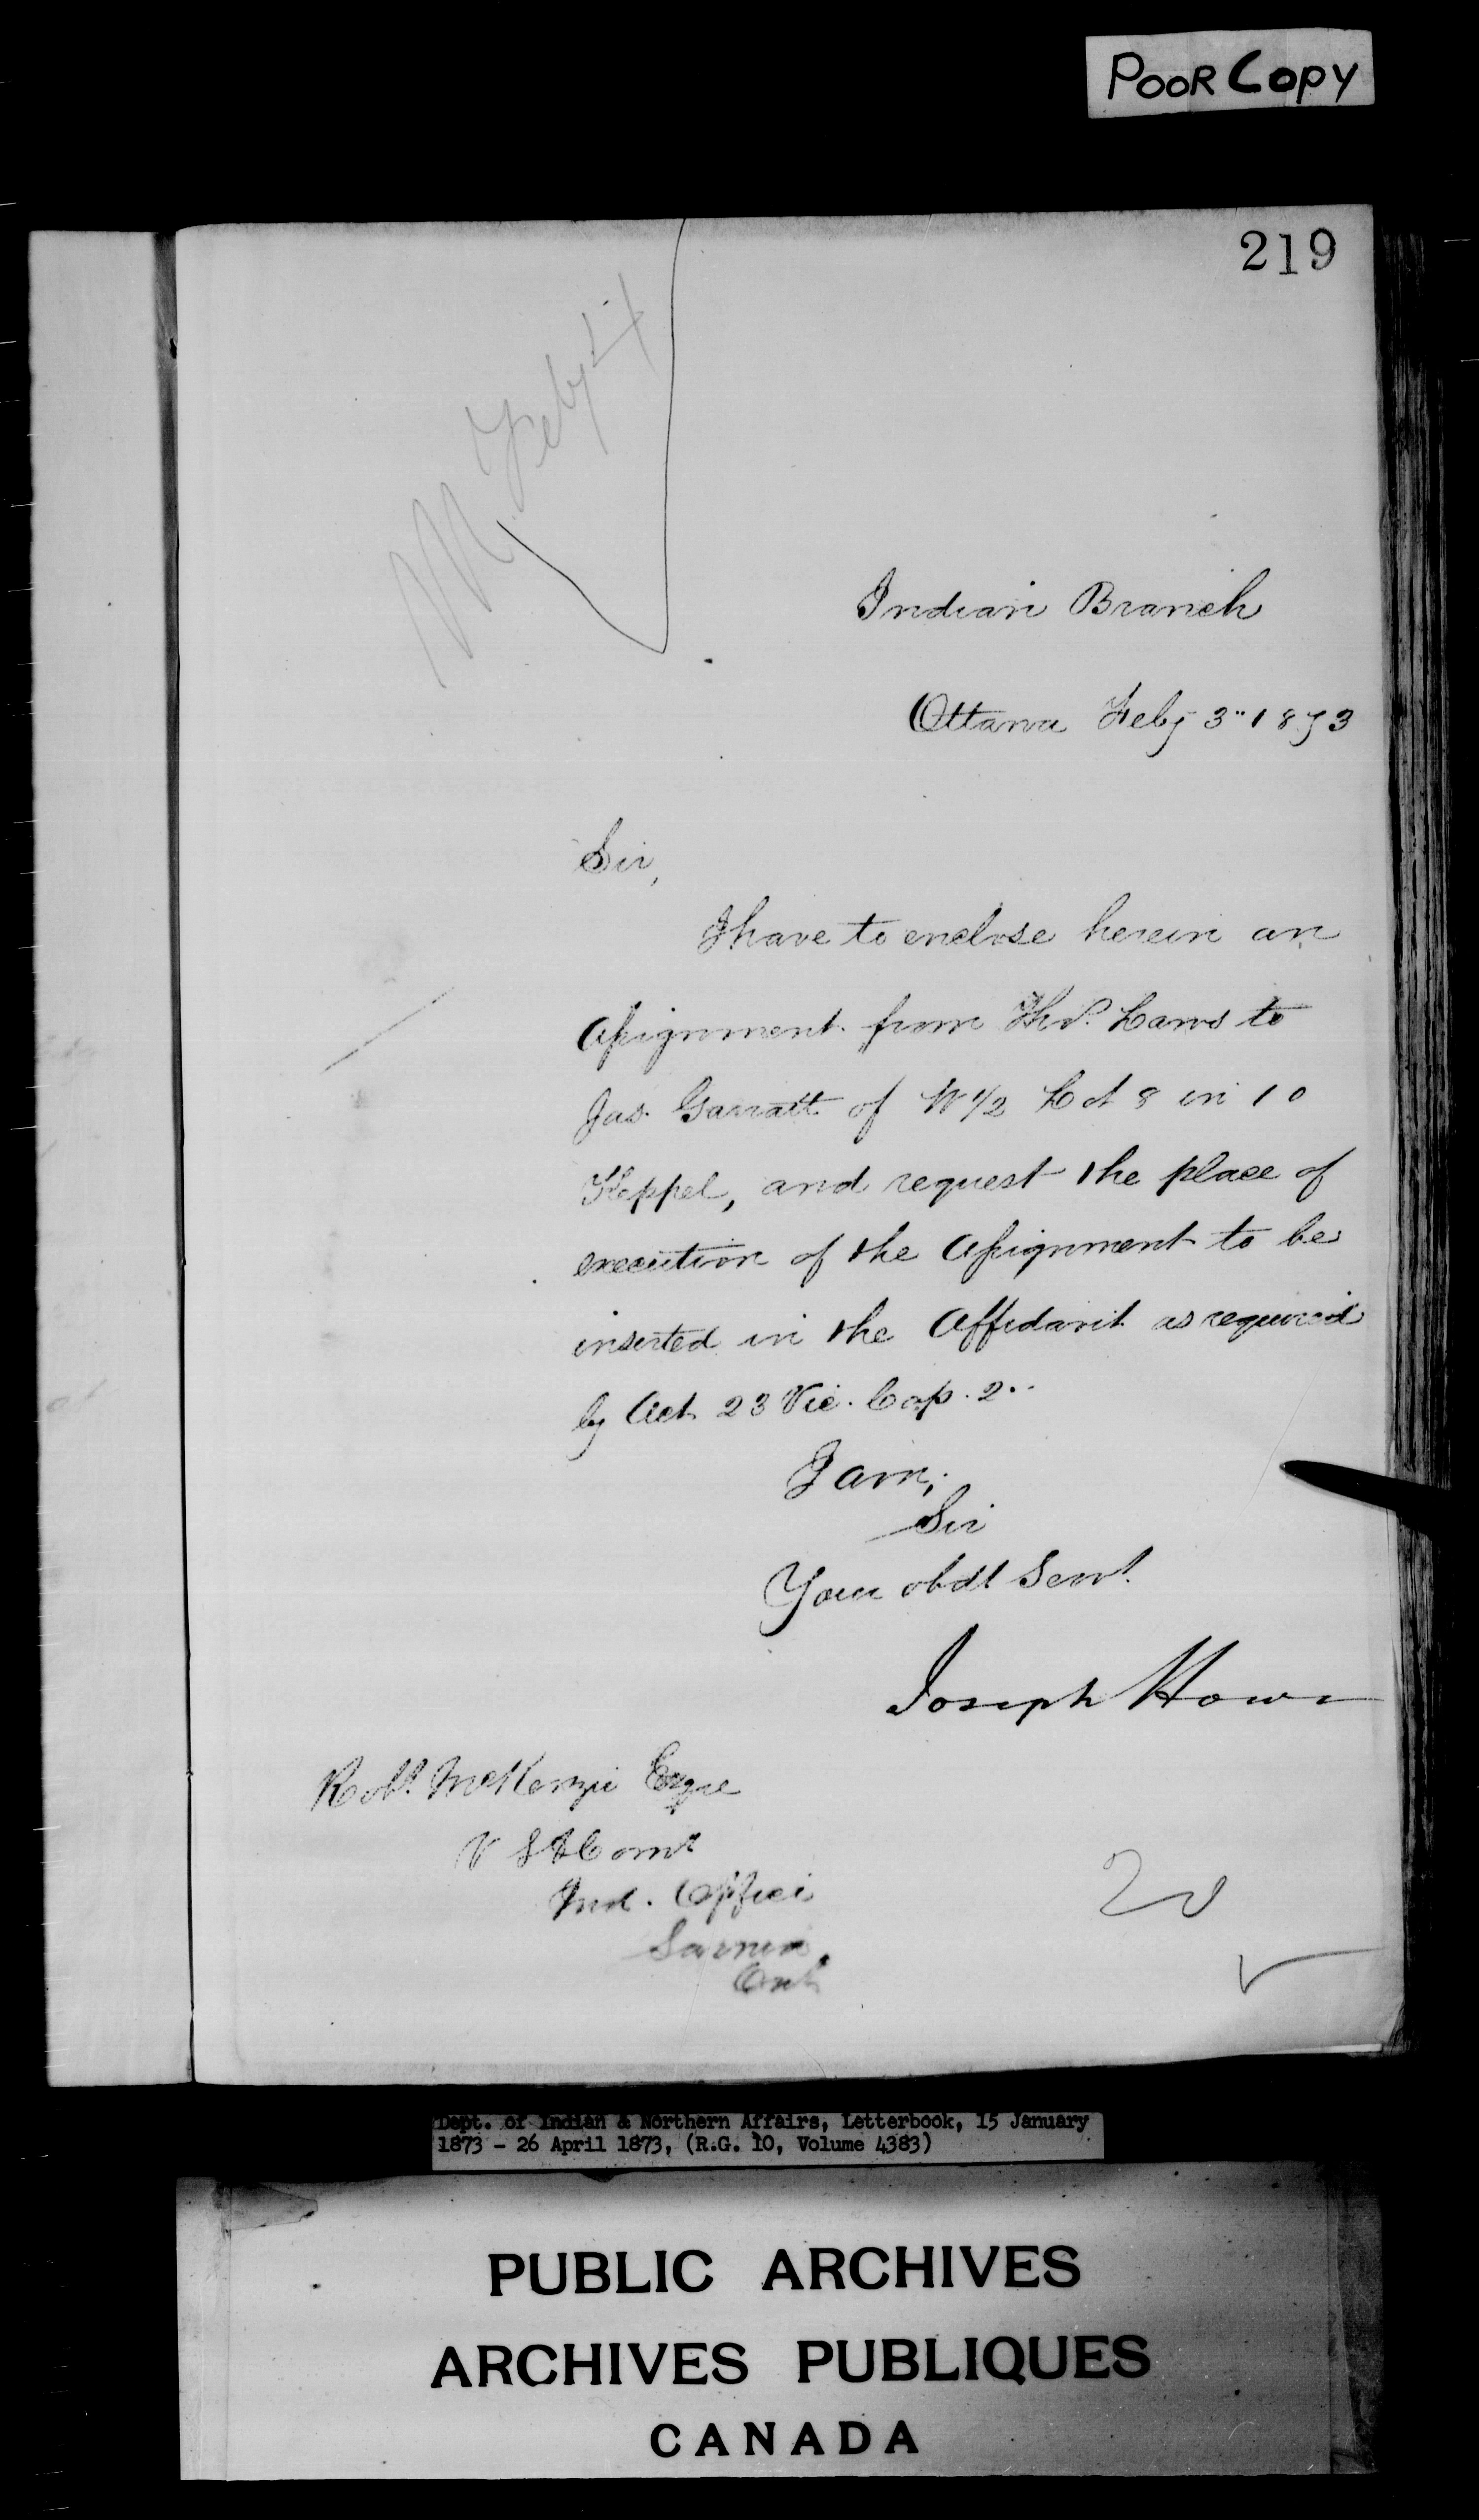 POOR COPY
219
Feby 4
Indian Branch
Ottawa Feby 3" 1873
Sir,
I have to enclose herein an
Assignment from Thos. Laws to
Jas. Garratt of W 1/2 Lot 8 in 10
Keppel, and request the place of
execution of the Assignment to be
inserted in the Affidavit as required
by Act 23 Vic. Cap. 2.
I am,
Sir
Your obdt Servt.
Joseph Howe
Robt. McKenzie Esqre
V S I Comr
Ind. Office
Sarnia
Ont
20
Dept. of Indian & Northern Affairs, Letterbook, 15 January
1873 - 26 April 1873, (R.G. 10, Volume 4383)
PUBLIC ARCHIVES
ARCHIVES PUBLIQUES
CANADA